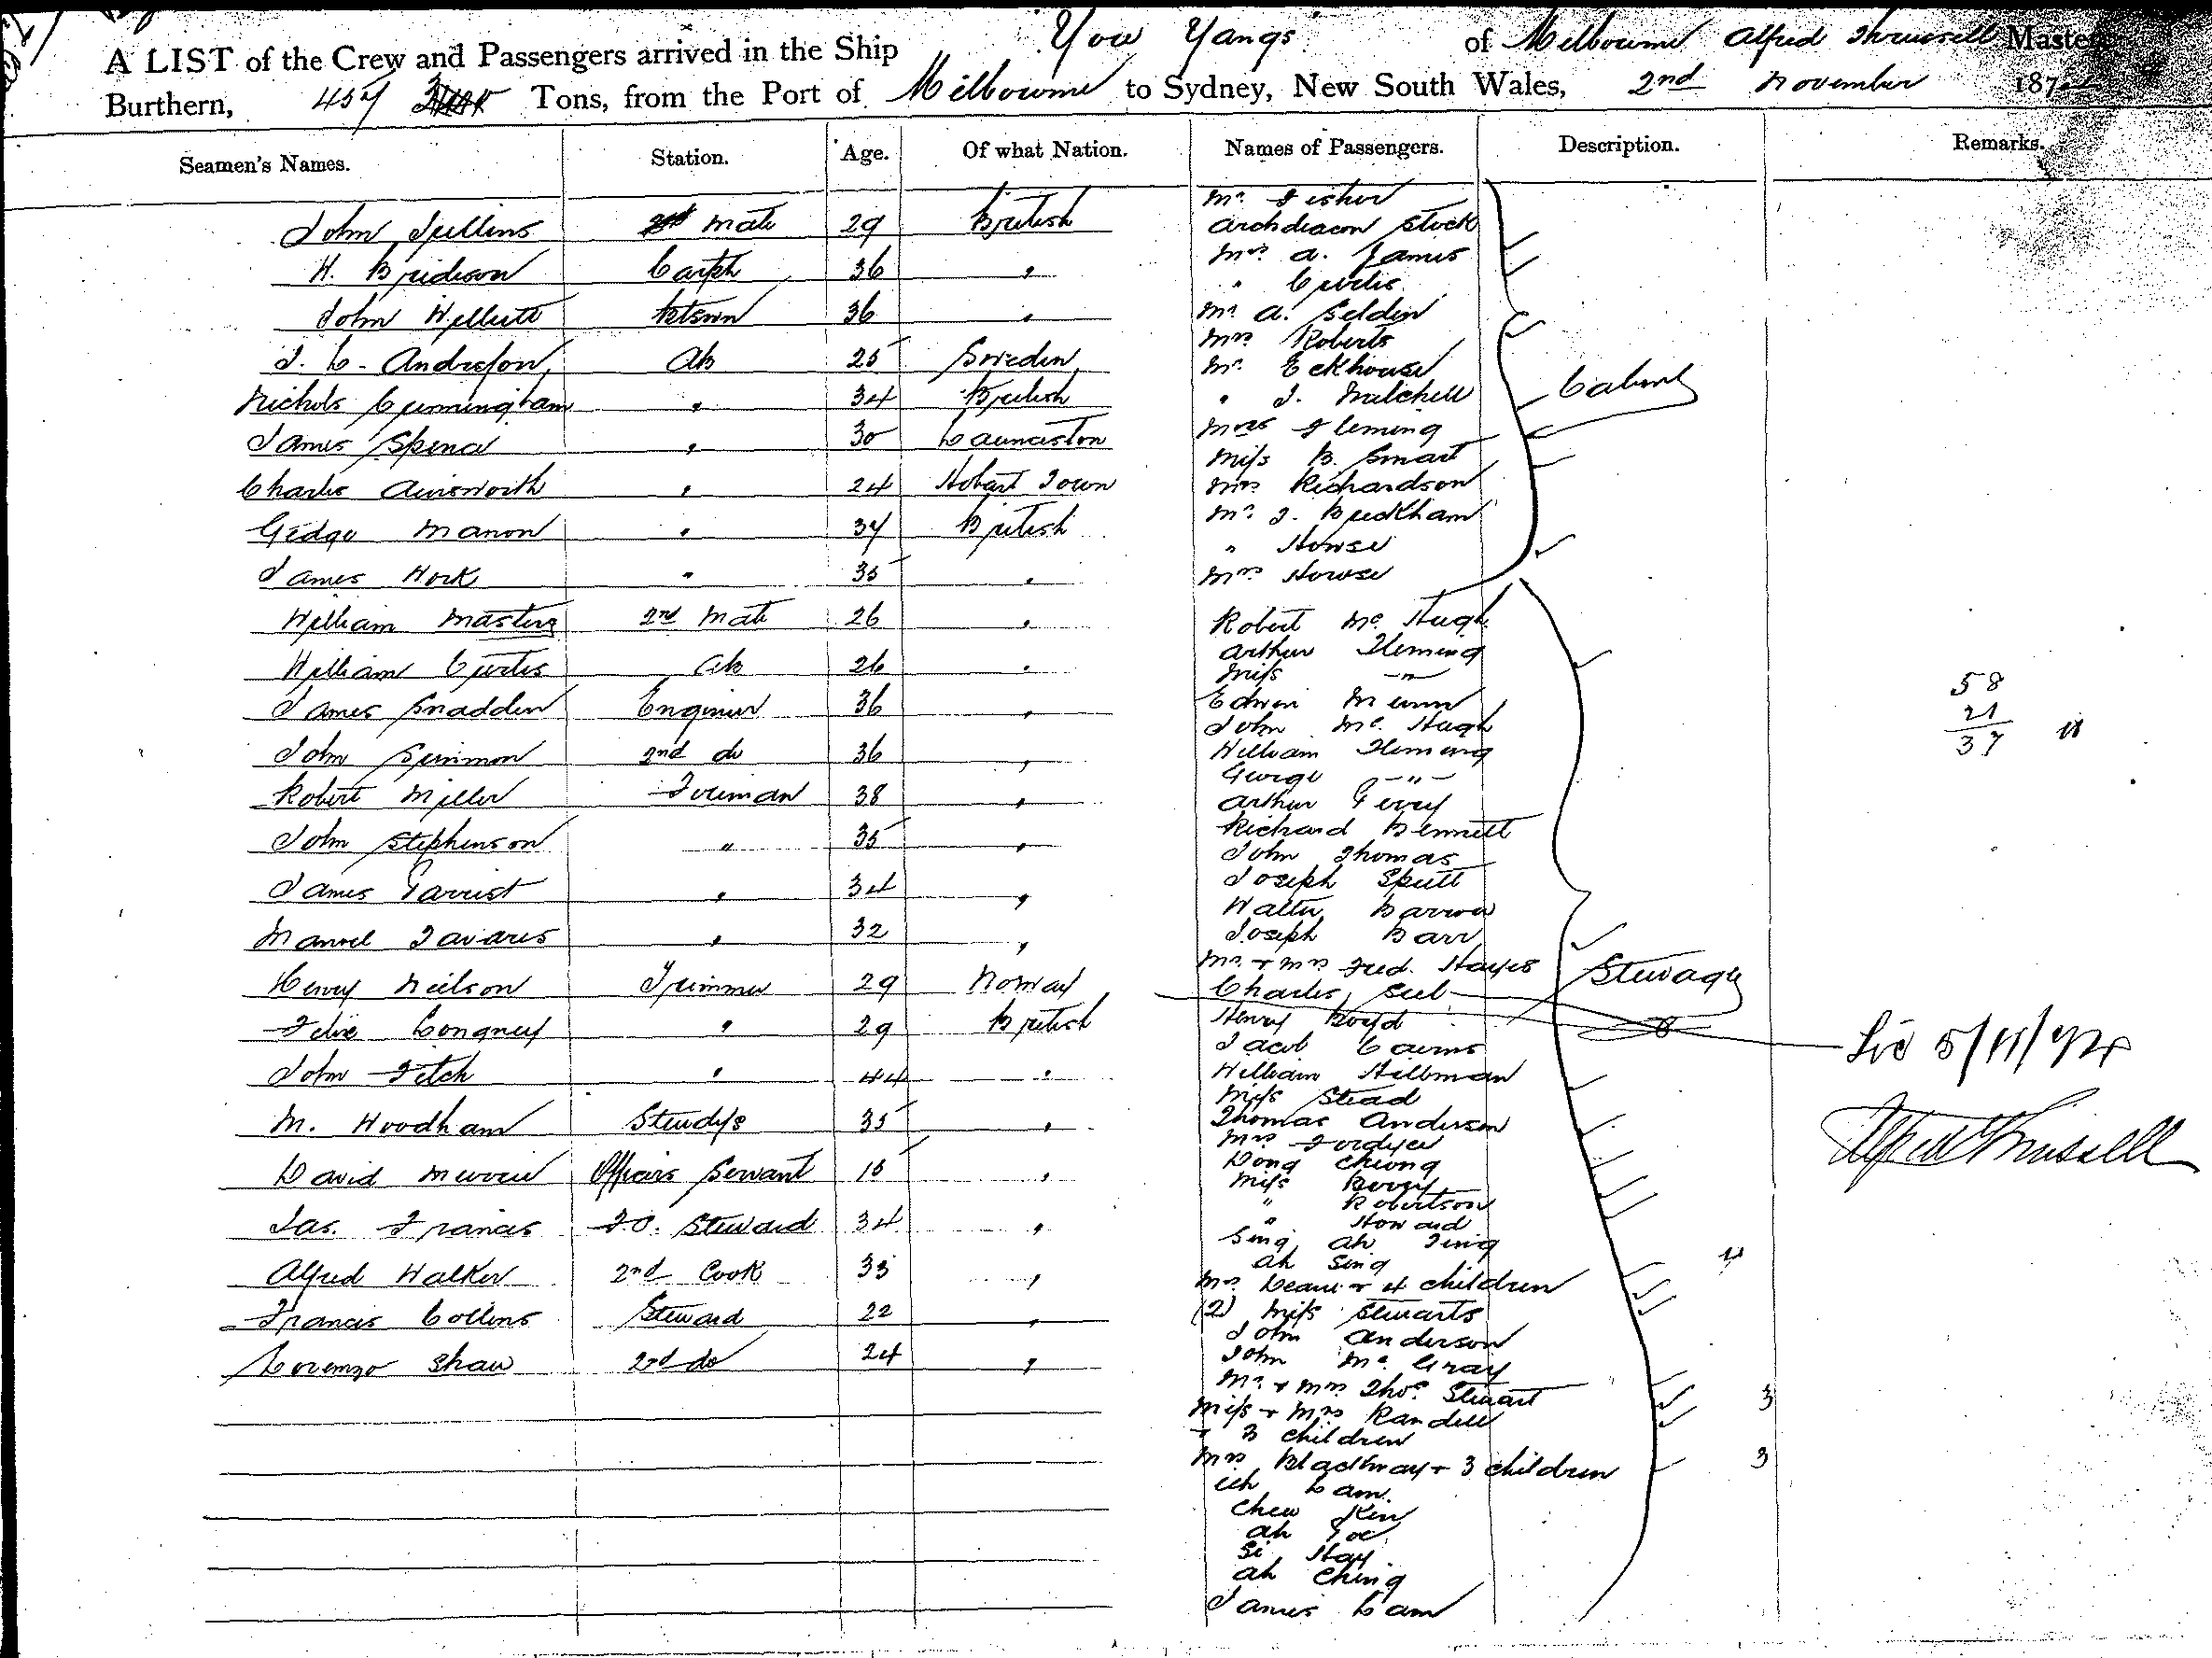 A LIST of the Crew and Passengers arrived in the Ship You Yangs of Melbourne Alfred Thrussell Master
Burthern, 457 Tons, from the Port of Melbourne to Sydney, New South Wales, 2nd November 187
Seamen's Names. Station. Age. Of what Nation. Names of Passengers. Description. Remarks.
John mate 29 British
H. Bridson Carptr 36 "
John 36 "
J. C. Anderson Ab 25 Sweden
Nichols Cunningham " 34 British
James Spence " 30 Launceston
Charles Ainsworth " 24 Hobart Town
Manon " 37 British
James " 35 "
William Masters 2nd Mate 26 "
William Curtis Ab 26 "
James Snadden Engineer 36 "
John 2nd do 36 "
Robert Miller Fireman 38 "
John Stephenson " 35 "
James " 34 "
Manuel Tavares " 32 "
Henry Neilson Trimmer 29 Norway
" 29 British
John Fitch " 44 "
M. Woodham Stewdss 35 "
David Servant 15 "
Jas. Francis F.C. Steward 34 "
Alfred Walker 2nd Cook 33 "
Francis Collins Steward 22 "
Lorenzo Shaw 2nd do 24 "
Mr. Fisher
Archdeacon Stock
Mrs. A. James
" Curtis
Mr. A. Selden
Mrs Roberts
Mr. Eckhouse
" J. Mitchell
Mrs Fleming
Miss B. Smart
Mrs Richardson
Mr. J. Beckham
" Howse
Mrs Howse
Cabin
Robert Mc. Hugh
Arthur Fleming
Miss -"-
Edwin Munn
John Mc. Hugh
William Fleming
George -"-
Arthur
Richard Bennett
John Thomas
Joseph
Walter Barrow
Joseph Barr
Mr. + Mrs Fred. Hayes
Charles
Henry Boyd
Jacob Cairns
William Hillman
Miss Stead
Thomas Anderson
Mrs Fordyce
Dong Cheong
Miss Berry
" Robertson
" Howard
Sing Ah
Ah Sing
Mrs Deane + 4 children
(2) Miss Stewarts
John Anderson
John Mc. Gray
Mr. + Mrs Thos. Stewart
Miss + Mrs Randell
+ 3 children
Mrs Blackway + 3 children
Lam
Chew Kin
Ah
Hay
Ah Ching
James Lam
Steerage
4
3
3
58
21
37
5/11/72
Alfred Thrussell